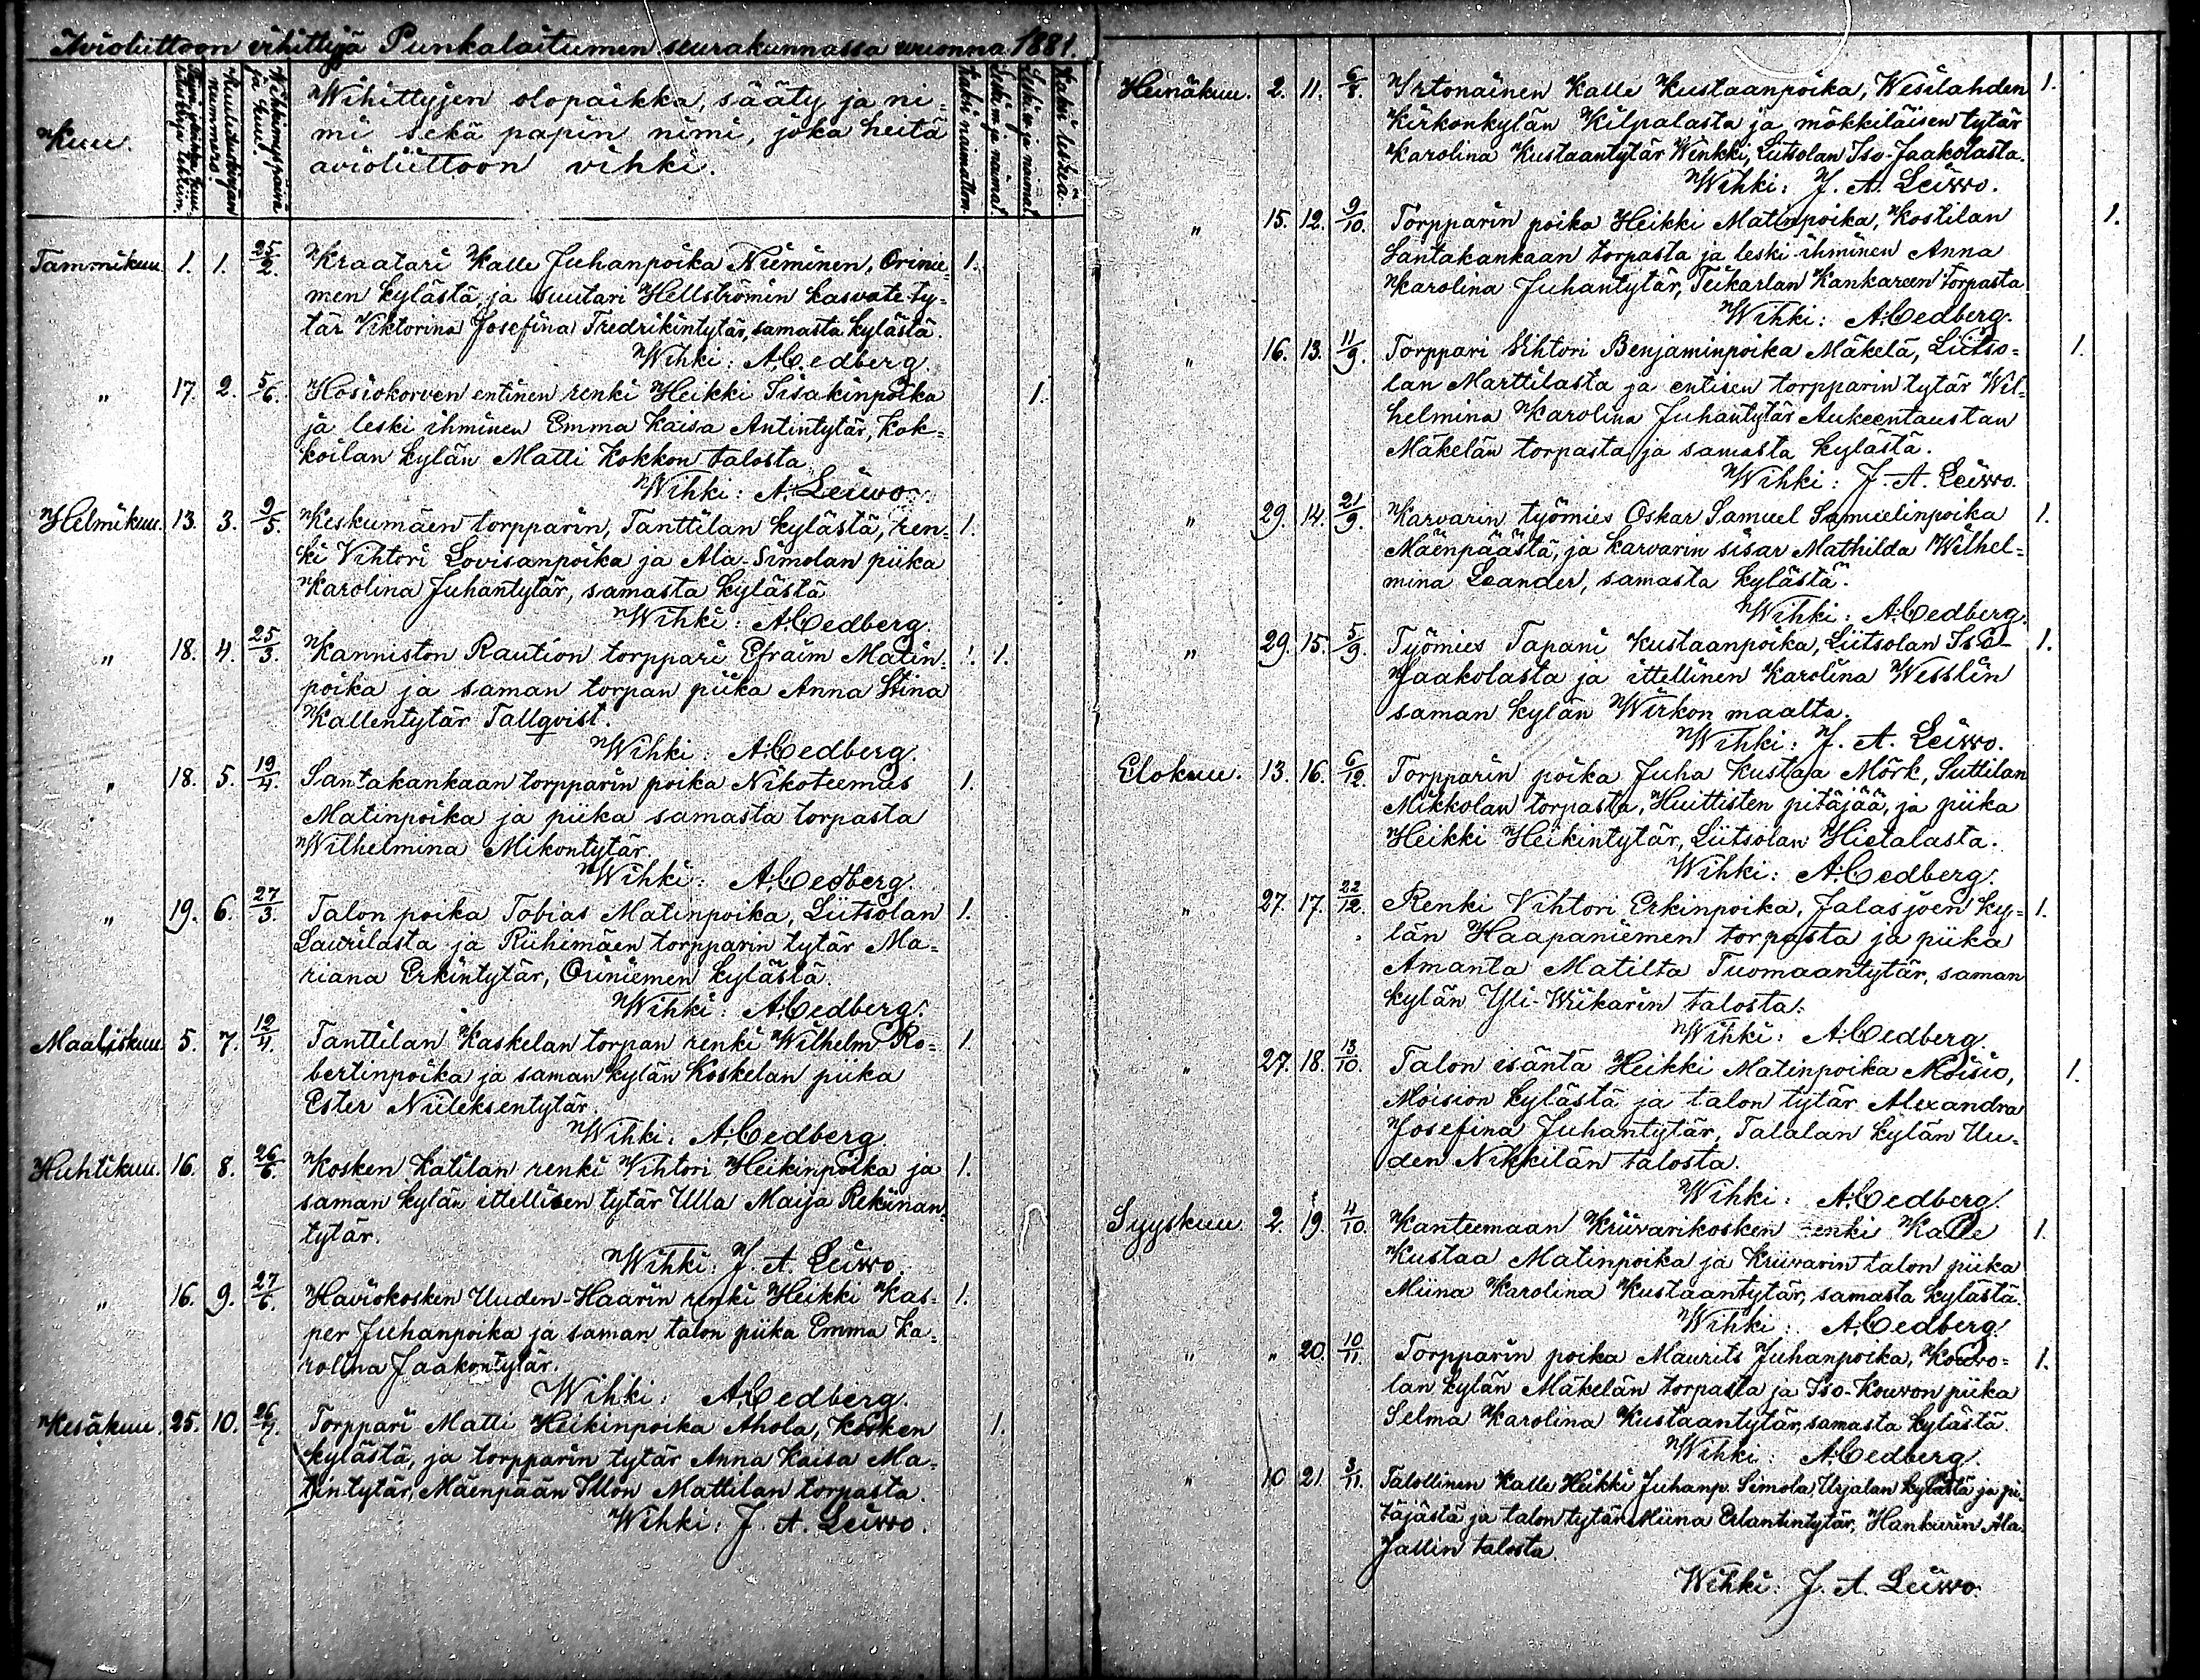 Avioliittoon vihittyjä Punkalaitumen seurakunnassa vuonna 1881.
Kuu.
Kuulutuskirjan nummero.
Vihkimyspäivä ja kuu.
Wihittyjen olopaikka, sääty ja ni-
mi sekä papin nimi, joka heitä
avioliittoon vihki.
Kaksi naimatton.
Leski m. ja naimat.
Leski v. ja naimat.
Kaksi leskeä.
Tammikuu. 1. 1. 25/2. Kraatari Kalle Juhanpoika Nieminen, Orinie- 1.
men kylästä, ja suutari Hellströmin kasvate ty-
tär Viktorina Josefina Fredrikintytär, samasta kylästä.
Wihki: A. Cedberg.
" 17. 2. 5/6. Hosiokorven entinen renki Heikki Iisakinpoika 1.
ja leski ihminen Emma Kaisa Antintytär, Kok-
koilan kylän Matti Kokkon talosta
Wihki: A. Leiwo.
Helmikuu. 13. 3. 9/5. Keskumäen torpparin, Tanttilan kylästä, ren- 1.
ki Vihtori Lovisanpoika ja Ala-Simolan piika
Karolina Juhantytär, samasta kylästä
Wihki: A. Cedberg.
" 18. 4. 25/3. Kanniston Raution torppari Efraim Matin- 1. 1.
poika ja saman torpan piika Anna Stina
Kallentytär Tallqvist.
Wihki: A. Cedberg.
" 18. 5. 19/4. Santakankaan torpparin poika Nikoteemus 1.
Matinpoika ja piika samasta torpasta
Wilhelmina Mikontytär
Wihki: A. Cedberg.
" 19. 6. 27/3. Talon poika Tobias Matinpoika, Liitsolan 1.
Laurilasta ja Riihimäen torpparin tytär Ma-
riana Erkintytär, Oriniemen kylästä.
Wihki: A. Cedberg.
Maaliskuu. 5. 7. 12/4. Tanttilan Kaskelan torpan renki Wilhelm Ro- 1.
bertinpoika ja saman kylän Koskelan piika
Ester Niileksentytär.
Wihki: A. Cedberg
Huhtikuu. 16. 8. 26/6. Kosken Katilan renki Wihtori Heikinpoika ja 1.
saman kylän ittellisen tytär Ulla Maija Rekiinan-
tytär.
Wihki: J. A. Leiwo.
" 16. 9. 27/6. Haviokosken Uuden-Haarin renki Heikki Kas- 1.
per Juhanpoika ja saman talon piika Emma Ka-
rolina Jaakontytär.
Wihki: A. Cedberg.
Kesäkuu. 25. 10. 26/7. Torppari Matti Heikinpoika Ahola, Kosken 1.
kylästä, ja torpparin tytär Anna Kaisa Ma-
tintytär, Mäenpään Illon Mattilan torpasta.
Wihki: J. A. Leiwo.
Heinäkuu. 2. 11. 6/8. Irtonainen Kalle Kustaanpoika, Wesilahden 1.
Kirkonkylän Kilpalasta ja mökkiläisen tytär
Karolina Kustaantytär Wenkki, Liitsolan Iso-Jaakolasta.
Wihki: J. A. Leiwo.
" 15. 12. 9/10. Torpparin poika Heikki Matinpoika, Kostilan 1.
Santakankaan torpasta ja leski ihminen Anna
Karolina Juhantytär, Teikarlan Kankareen torpasta
Wihki: A. Cedberg.
" 16. 13. 11/9. Torppari Vihtori Benjaminpoika Mäkelä, Liitso- 1.
lan Marttilasta ja entisen torpparin tytär Wil-
helmina Karolina Juhantytär Aukeentaustan
Mäkelän torpasta ja samasta kylästä.
Wihki: J. A. Leiwo.
" 29. 14. 21/9. Karvarin työmies Oskar Samuel Samuelinpoika 1.
Mäenpäästä, ja karvarin sisar Mathilda Wilhel-
mina Leander, samasta kylästä.
Wihki: A. Cedberg.
" 29. 15. 5/9. Työmies Tapani Kustaanpoika, Liitsolan Iso- 1.
Jaakolasta ja ittellinen Karolina Wesslin
saman kylän Wirkon maalta.
Wihki: J. A. Leiwo.
Elokuu. 13. 16. 6/12. Torpparin poika Juha Kustaa Mörk, Suttilan
Mikkolan torpasta, Huittisten pitäjää, ja piika
Heikki Heikintytär, Liitsolan Hietalasta.
Wihki: A. Cedberg.
" 27. 17. 22/12. Renki Vihtori Erkinpoika, Jalasjoen ky- 1.
län Haapaniemen torpasta ja piika
Amanta Matilta Tuomaantytär, saman
kylän Yli-Wiikarin talosta.
Wihki: A. Cedberg.
" 27. 18. 13/10. Talon isäntä Heikki Matinpoika Moisio, 1.
Moision kylästä ja talon tytär Alexandra
Josefina Juhantytär, Talalan kylän Uu-
den Nikkilän talosta.
Wihki: A. Cedberg.
Syyskuu. 2. 19. 4/10. Kanteemaan Kriivarikosken renki Kalle 1.
Kustaa Matinpoika ja Kriivarin talon piika
Miina Karolina Kustaantytär, samasta kylästä.
Wihki: A. Cedberg.
" " 20. 10/11. Torpparin poika Maurits Juhanpoika, Kouvo- 1.
lan kylän Mäkelän torpasta ja Iso-Kouvon piika
Selma Karolina Kustaantytär, samasta kylästä.
Wihki: A. Cedberg.
" 10 21. 3/11. Talollinen Kalle Heikki Juhanp. Simola, Urjalan kylästä ja pi-
täjästä ja talon tytär Miina Erlantintytär, Hankurin Ala-
Jallin talosta.
Wihki: J. A. Leiwo.